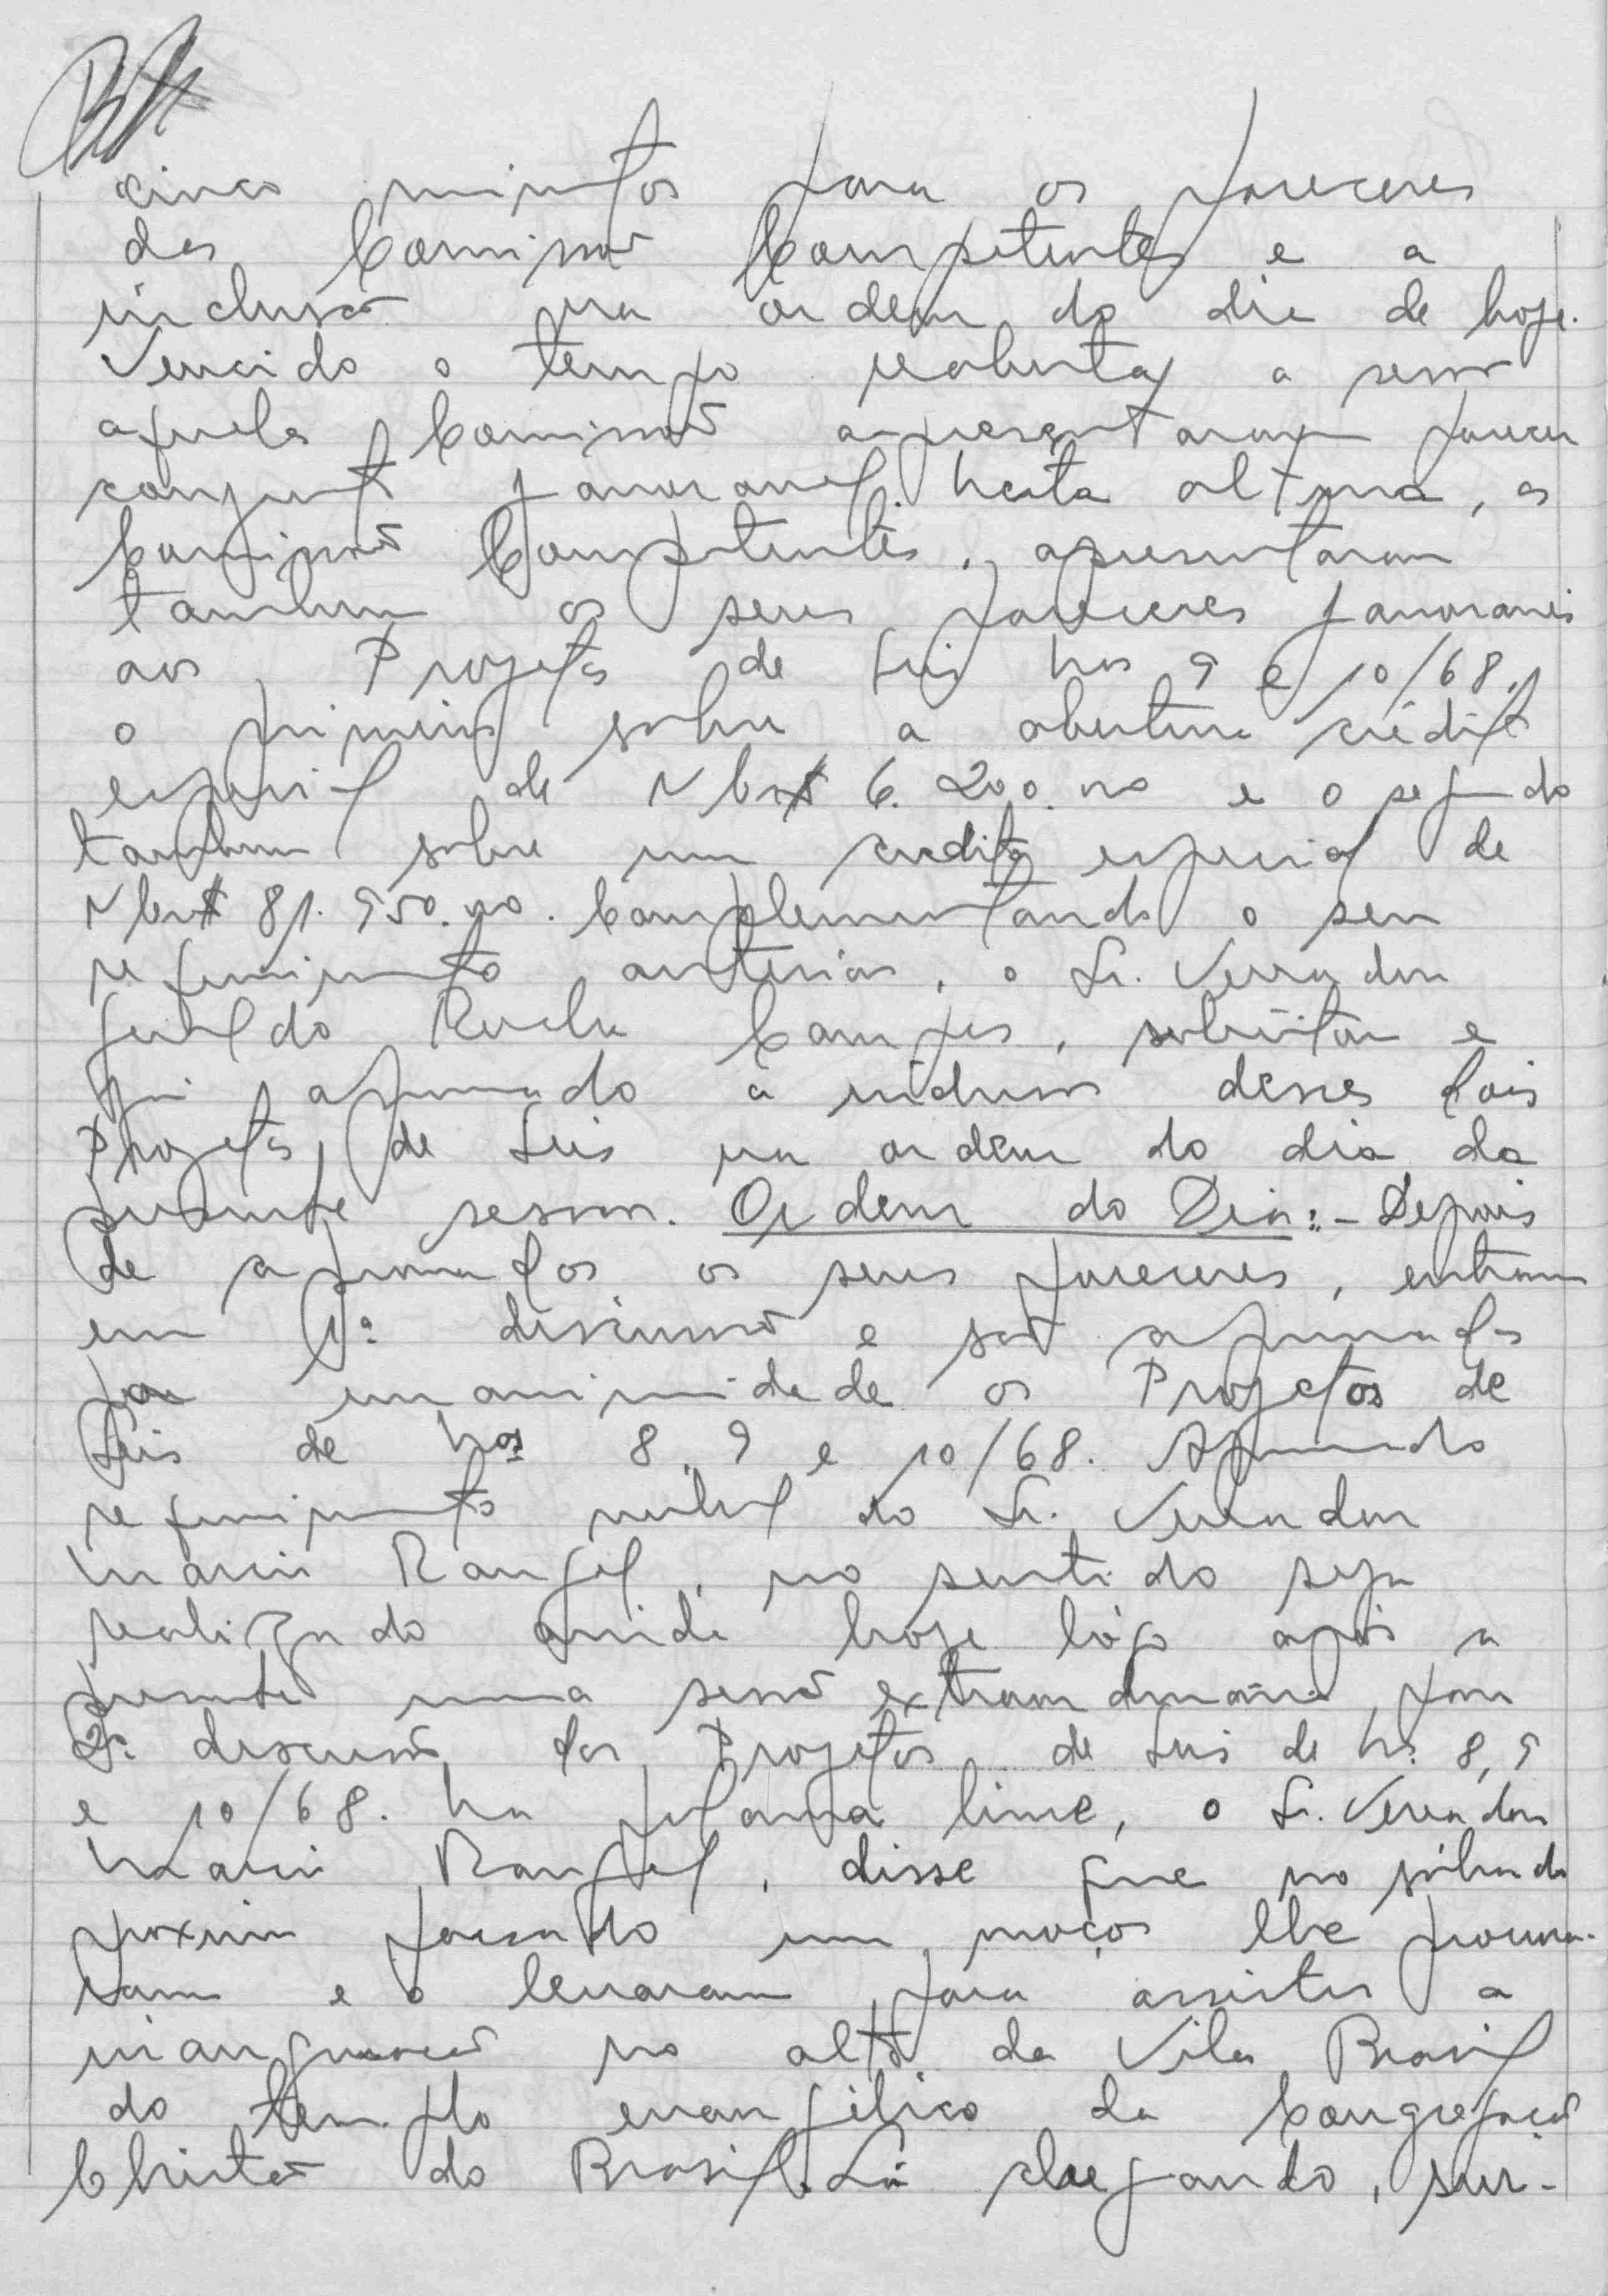 cinco minutos para os pareceres
das Comissão Competentes e a
inclusão na ordem do dia de hoje.
Vencido o tempo reaberta a sessão
aquela Comissão apresentaram parecer
conjunto favoravel. Nesta altura, as
Comissão Competentes, apresentaram
tambem os seus pareceres favoraveis
aos Projetos de Leis nos 9 e 10/68,
o primeiro sobre a abertura crédito
especial de NCr$ 6.200.00 e o segundo
tambem sobre um credito especial de
NCr$ 81.950.00. Complementando o seu
requerimento anterior, o Sr. Vereador
Geraldo Rocha Campos, solicitou e
foi aprovado a inclusão desses dois
Projetos de Leis na ordem do dia da
presente sessão. Ordem do Dia:- Depois
de aprovados os seus pareceres, entram
em 1ª discussão e são aprovados
por unanimidade os Projetos de
Leis de nos 8, 9 e 10/68. Aprovado
requerimento verbal do Sr. Vereador
Marcio Rangel, no sentido seja
realizado ainda hoje lógo após a
presente uma sessão extraordinaria, para
2ª discussão dos Projetos de Leis de ns. 8, 9
e 10/68. Na palavra livre, o Sr. Vereador
Marcio Rangel, disse que no sábado
proximo passado uns moços lhe procura-
ram e o levaram para assistir a
inauguração no alto da Vila Brasil
do templo evangélico da Congregação
Christã do Brasil. Lá chegando, sur-